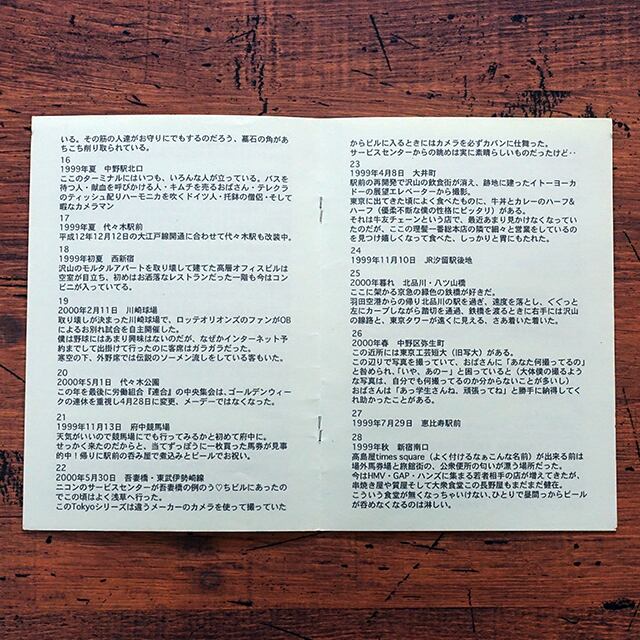 いる。その筋の人達がお守りにでもするのだろう、墓石の角があ
ちこち削り取られている。
16
1999年夏　中野駅北口
ここのターミナルにはいつも、いろんな人が立っている。バスを
待つ人・献血を呼びかける人・キムチを売るおばさん・テレクラ
のティッシュ配りハーモニカを吹くドイツ人・托鉢の僧侶・そして
暇なカメラマン
17
1999年夏　代々木駅前
平成12年12月12日の大江戸線開通に合わせて代々木駅も改装中。
18
1999年初夏　西新宿
沢山のモルタルアパートを取り壊して建てた高層オフィスビルは
空室が目立ち、初めはお洒落なレストランだった一階も今はコン
ビニが入っいてる。
19
2000年2月11日　川崎球場
取り壊しが決まった川崎球場で、ロッテオリオンズのファンがOB
によるお別れ試合を自主開催した。
僕は野球にはあまり興味はないのだが、なぜかインターネット予
約までして出掛けて行ったのに客席はガラガラだった。
寒空の下、外野席では伝説のソーメン流しをしている客もいた。
20
2000年5月1日　代々木公園
この年を最後に労働組合『連合』の中央集会は、ゴールデンウィー
クの連休を重視し4月28日に変更、メーデーではなくなった。
21
1999年11月13日　府中競馬場
天気がいいので競馬場にでも行ってみるかと初めて府中に。
せっかく来たのだからと、当てずっぽうに一枚買った馬券が見事
的中！帰りに駅前の呑み屋で煮込みとビールでお祝い。
22
2000年5月30日　吾妻橋・東武伊勢崎線
ニコンのサービスセンターが吾妻橋の例のう♡ちビルにあったの
でこの頃はよく浅草へ行った。
このTokyoシリーズは違うメーカーのカメラを使って撮っていた
からビルに入るときにはカメラを必ずカバンに仕舞った。
サービスセンターからの眺めは実に素晴らしいものだったけど‥
23
1999年4月8日　大井町
駅前の再開発で沢山の飲食街が消え、跡地に建ったイトーヨーカ
ドーの展望エレベーターから撮影。
東京に出てきた頃によく食べたものに、牛丼とカレーのハーフ&
ハーフ（優柔不断な僕の性格にピッタリ）がある。
それは牛友チェーンという店で、最近あまり見かけなくなってい
たのだが、ここの理髪一番総本店の隣で細々と営業をしているの
を見つけ嬉しくなって食べた、しっかりと胃にもたれた。
24
1999年11月10日　JR汐留駅後地
25
2000年暮れ　北品川・八ツ山橋
ここに架かる京急の緑色の鉄橋が好きだ。
羽田空港からの帰り北品川の駅を過ぎ、速度を落とし、ぐぐっと
左にカーブしながら踏切を通過、鉄橋を渡るときに右手には沢山
の線路と、東京タワーが遠くに見える、さあ着いた着いた。
26
2000年春　中野区弥生町
この近所には東京工芸短大（旧写大）がある。
この辺りで写真を撮っていて、おばさんに「あなた何撮ってるの」
と咎められ、「いや、あのー」と困っていると（大体僕の撮るよう
な写真は、自分でも何撮ってるのか分からないことが多いし）
おばさんは「あっ学生さんね、頑張ってね」と勝手に納得してく
れ助かったことがある。
27
1999年7月29日　恵比寿駅前
28
1999年秋　新宿南口
高島屋times square（よく付けるなぁこんな名前）が出来る前は
場外馬券場と旅館街の、公衆便所の匂いが漂う場所だった。
今はHMV・GAP・ハンズに集まる若者相手の店が増えてきたが、
串焼き屋や質屋そして大衆食堂この長野屋もまだまだ健在。
こういう食堂が無くなっちゃいけない、ひとりで昼間っからビール
が呑めなくなるのは淋しい。